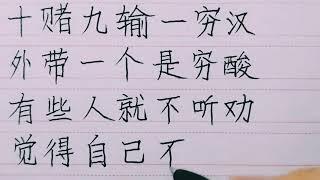 十赌九输一穷汉
外带一个是穷酸
有些人就不听劝
觉得自己不